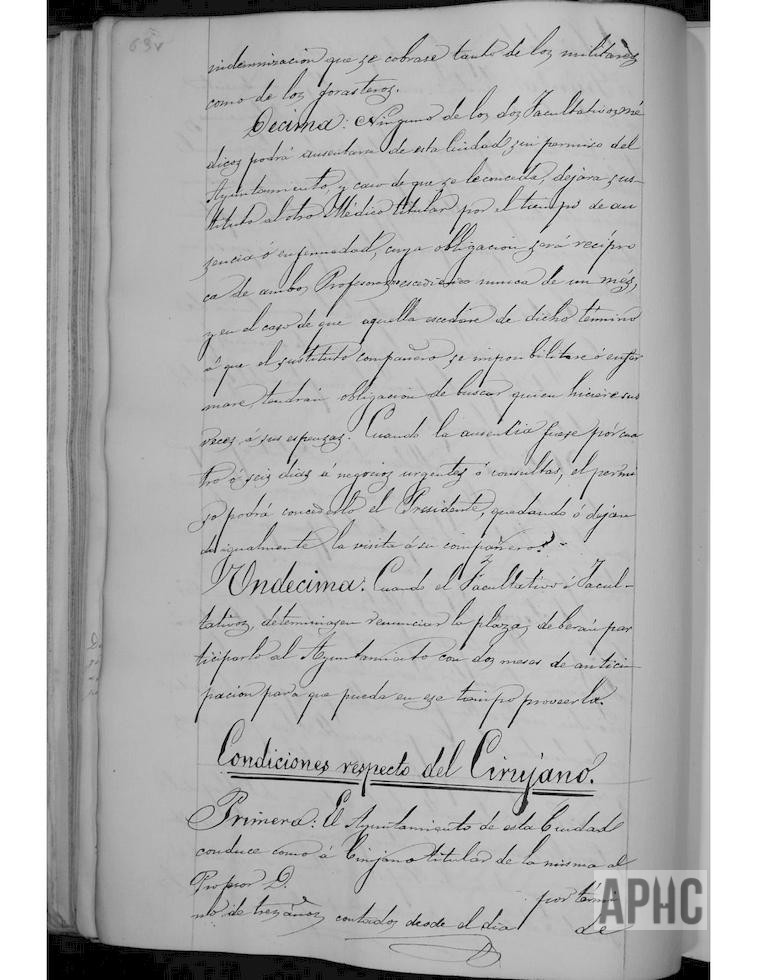 63v
indemnizacion que se cobrase tanto de los militares
como de los forasteros.
Decima: Ninguno de los dos Facultativos mé
dicos podrá ausentarse de esta Ciudad sin permiso del
Ayuntamiento, y caso de que se le conceda, dejará sus-
tituto al otro Médico titular por el tiempo de au
sencia ó enfermedad, cuya obligacion será recípro
ca de ambos Profesores, escediendo nunca de un més,
y en el caso de que aquella escediere de dicho término
ó que el sustituto compañero se imposibilitare ó enfer
mare, tendrán obligacion de buscar quien hiciere sus
veces á sus espensas. Cuando la ausencia fuese por cua
tro ó seis dias á negocios urgentes ó consultas, el permi
so podrá concederlo el Presidente, quedando ó dejan
do igualmente la visita á su compañero.
Undecima: Cuando el Facultativo ó Facul-
tativos, determinasen renunciar la plaza, deberán par
ticiparlo al Ayuntamiento con dos meses de antici-
pacion para que pueda en ese tiempo proveerla.
Condiciones respecto del Cirujano.
Primera: El Ayuntamiento de esta Ciudad
conduce como á Cirujano titular de la misma al
Profesor D. por térmi
no de tres años contados desde el dia de
APHC